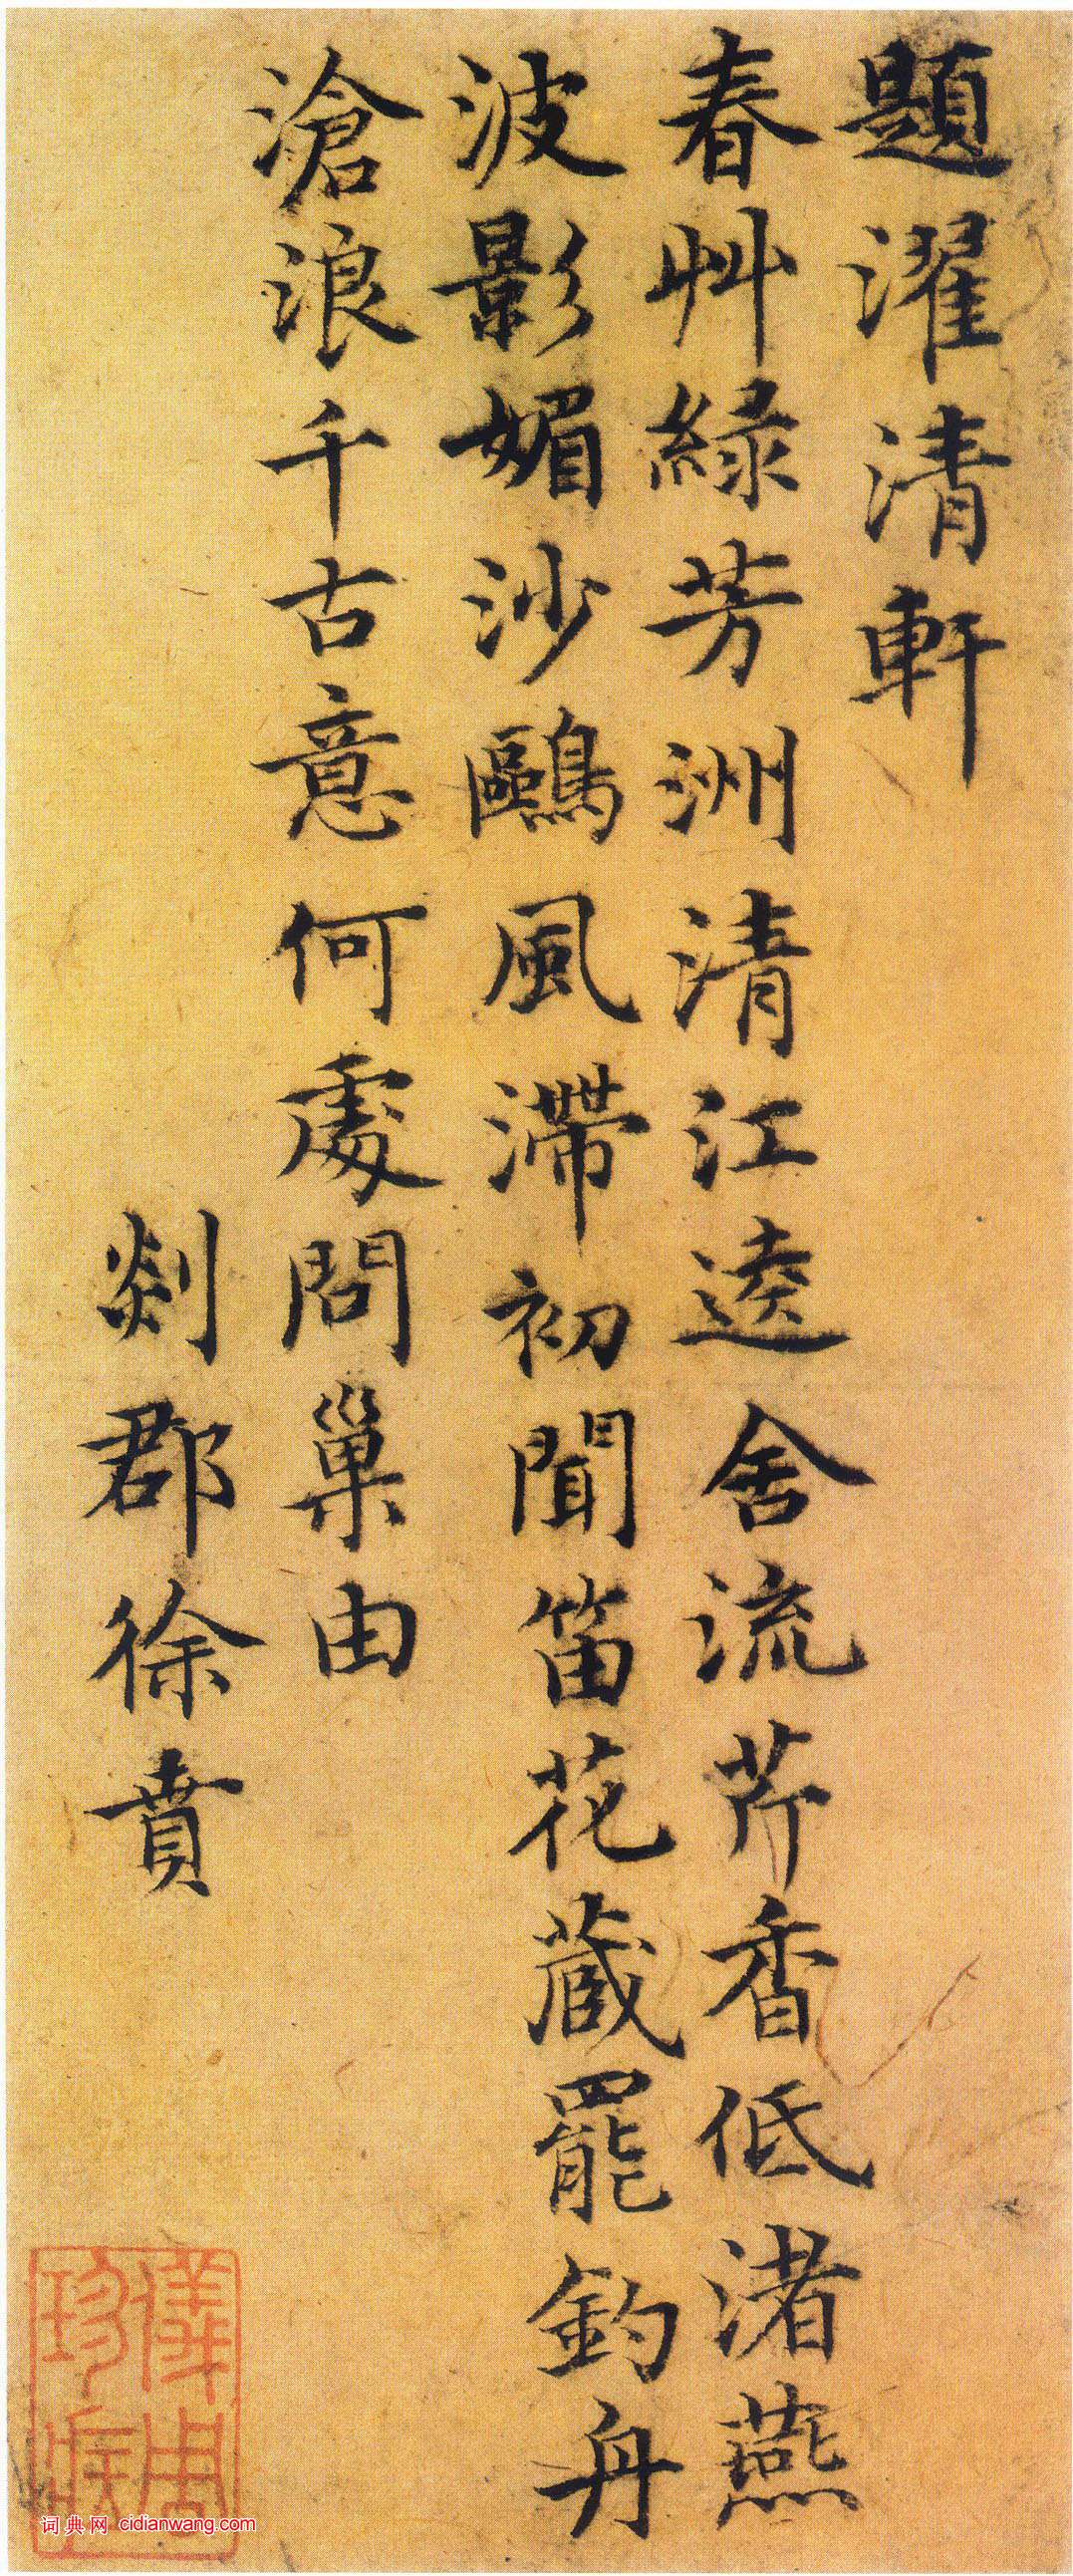 題濯清軒
春艸綠芳洲清江遶舍流芹香低渚燕
波影媚沙鷗風滯初聞笛花藏罷釣舟
滄浪千古意何處問巢由
剡郡徐賁
儀周珍藏
词典网 cidianwang.com